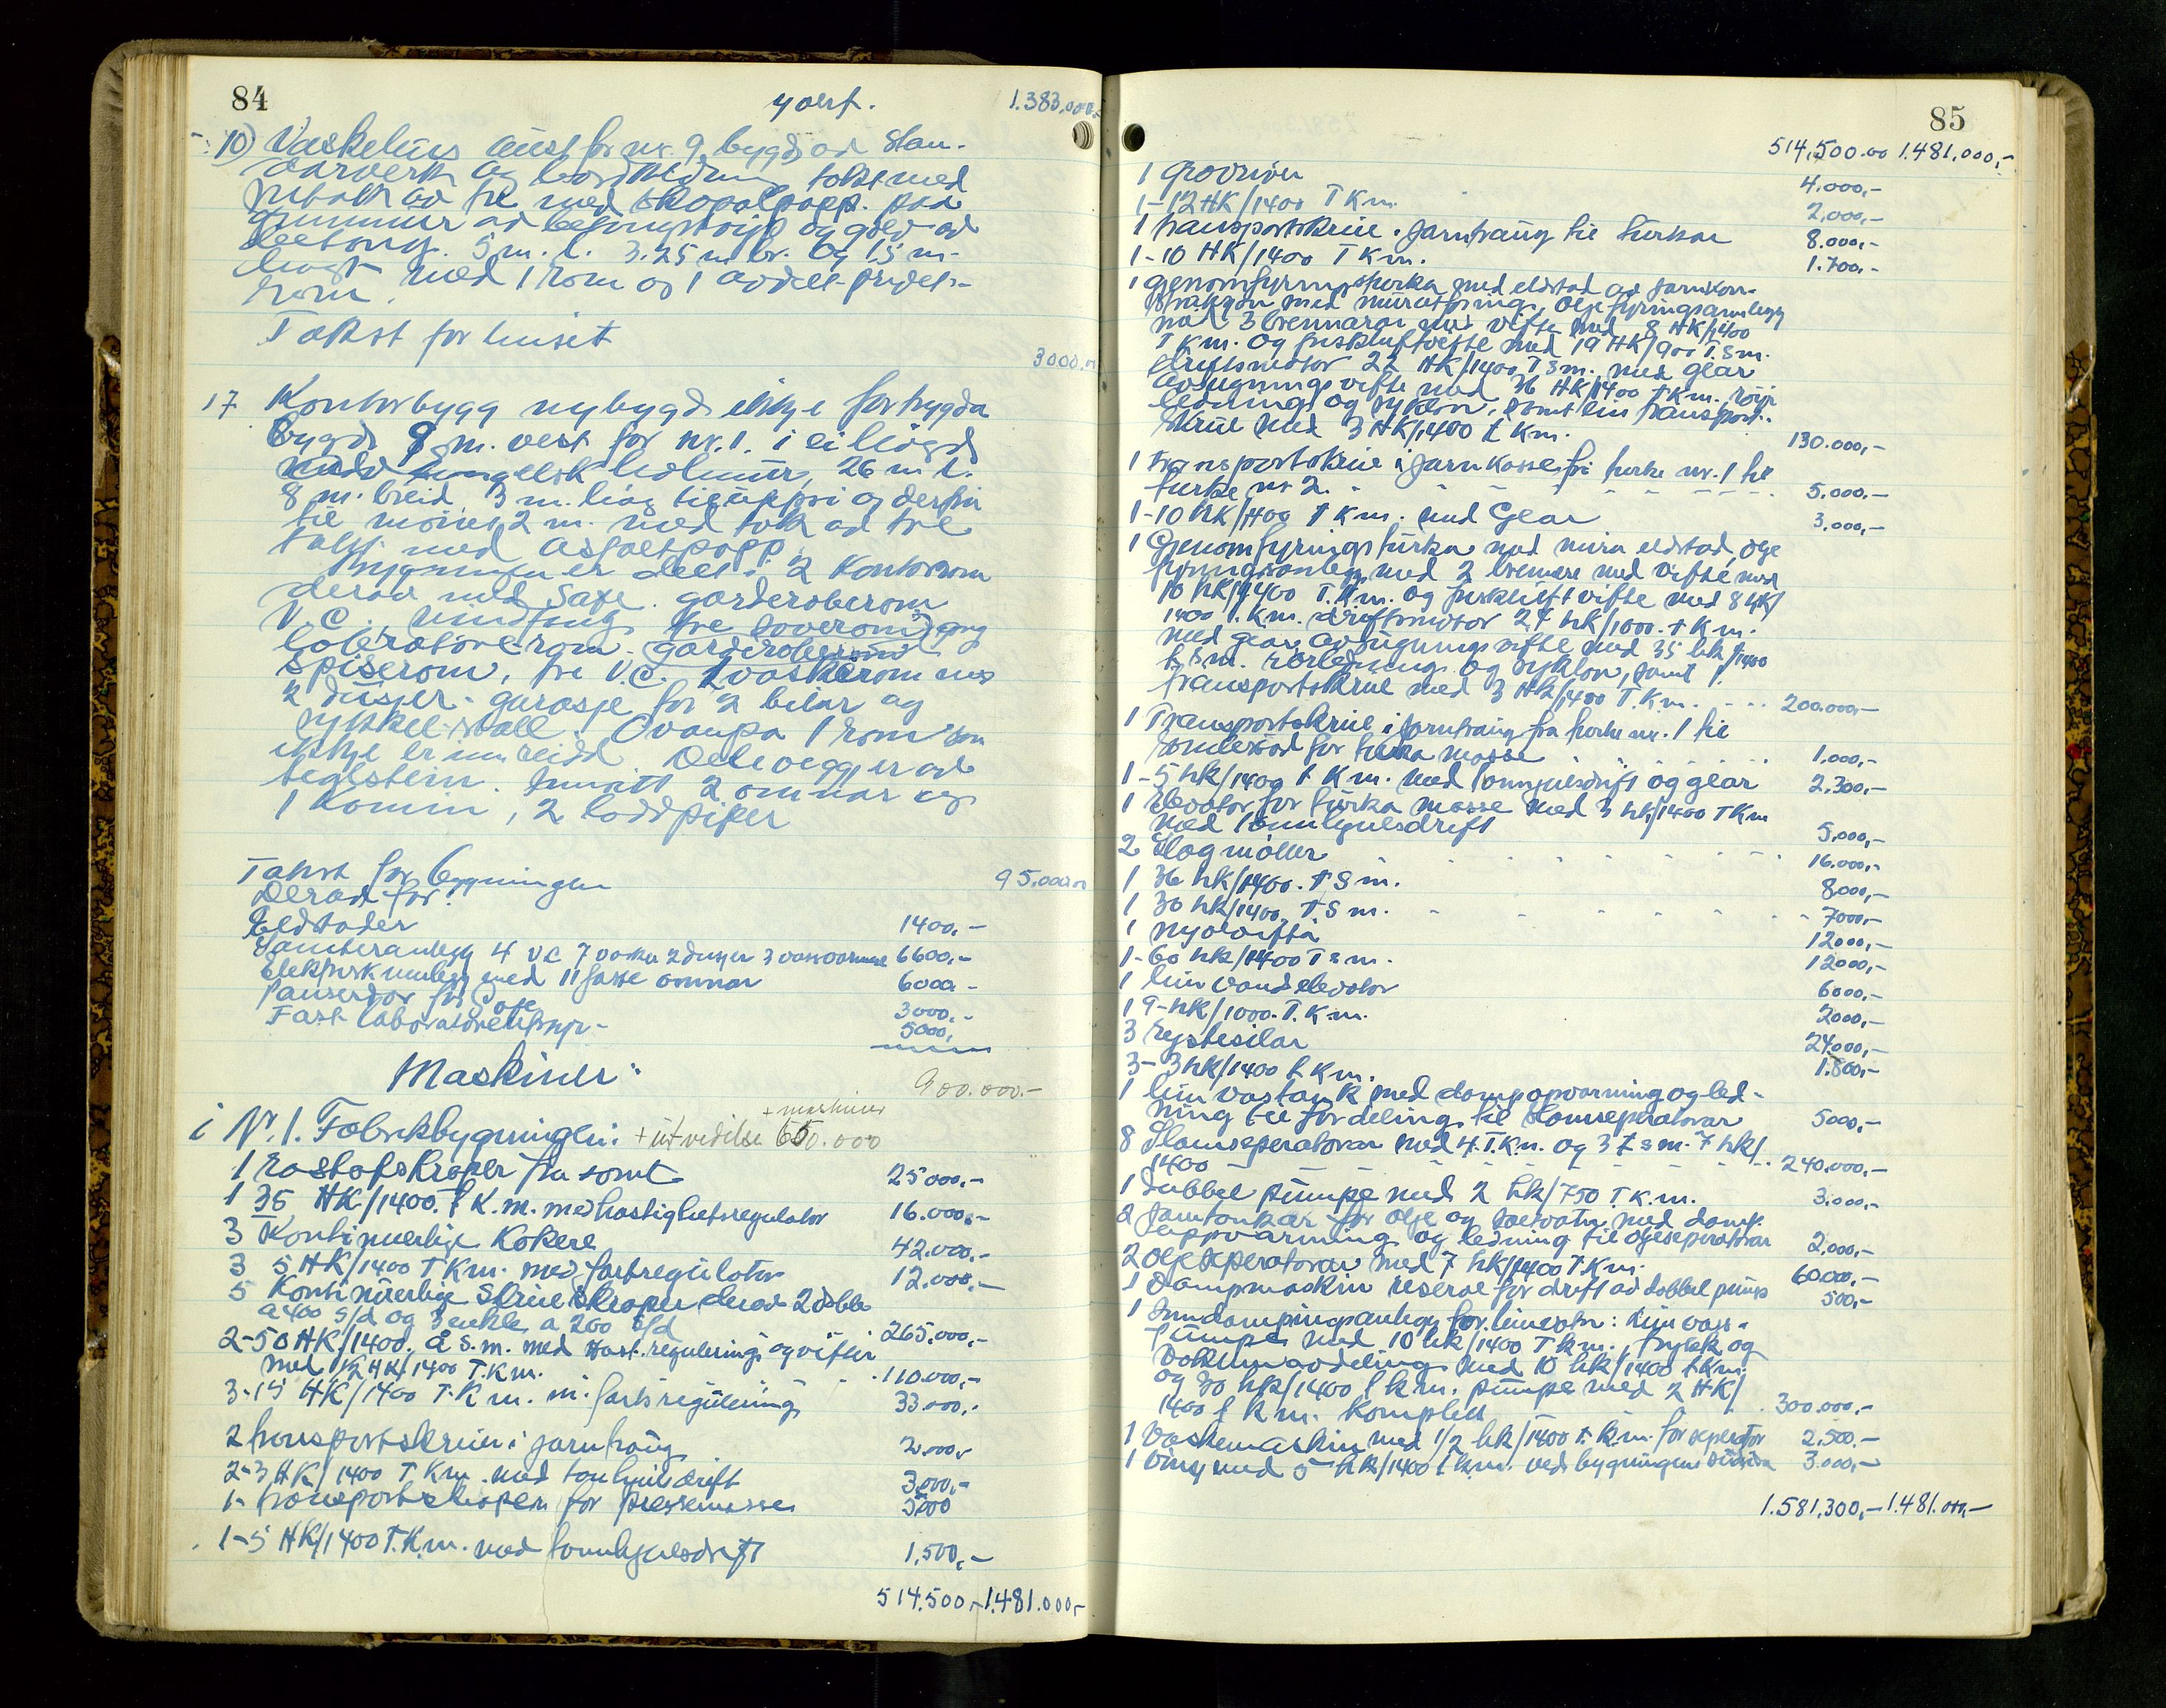 84
overf. 1.383,000,-
10) Vaskehus aust for nr. 9, bygd ad stan-
darverk og bordkledning tekt med
rutak ad tre med skopalpapp. paa
grunnmur ad betongstøyp og golv ad
betong. 5 m. l. 3.25 m br. og 1.5 m-
høgt med 1 rom og 1 avdelt
rom.
Takst for huset
3000,-
17 Kontorbygg nybygd ikkje fortrygda
bygd 9 m. vest for nr. 1. i ei høgd
holmur, 26 m l.
8 m. breid 3 m. høg til uppsi og derfrå
til møne 2 m. med tak ad tre
takt med asfaltpapp.
Bygningen er delt i 2 kontorrom
derav med Safe. garderoberom
V.C., vindfang, tre soverom, gang
laboratorierom. garderoberom
spiserom, tre V.C. 1 vaskerom med
2 dusjer. garasje for 2 bilar og
sykkel-stall. Ovanpa 1 rom som
ikkje er innreidd. Delevegger ad
teglstein. Innsatt 2 omnar og
1 komin, 2 loddpiper
Takst for bygningen 95.000,-
Derad for:
Eldstader 1400,-
Saniteranlegg 4 V.C 7 vaskar 2 dusjer 3 vassvarmar 6600,-
Elektrisk anlegg med 11 faste omnar 6000 -
Panserdør for Safe 3000,-
Fast laboratorieutstyr - 5000,
Maskiner: 900.000.-
+ maskiner
i Nr. 1. Fabrikbygningen: + utvidelse 650.000
1 rastofskraper fra tomt 25000,-
1 35 HK/1400. T K. m. med hastighetsregulator 16.000,-
3 Kontinuerlige Kokere 42.000,-
3 5 HK/1400 T K m. med fartregulator 12.000,-
5 Kontinuerlige Skrueskraper derav 2 doble
a 400 S/d og 3 enkle a 200 S/d 265.000,-
2-50 HK/1400. a S.m. med Hast. regulering og vifter
med 1/2 HK/1400 T.K m. 110.000,-
3-15 HK/1400 T.K m. m. fartsregulering 33.000,-
2 transportskruer i jarntraug 2.000,-
2-3 HK/1400 T K m. med tannhjulsdrift 3.000,-
1- transportskoper for pressemasse 5000
1-5 HK/1400 T.K.m. med tannhjulsdrift 1,500,-
514.500,- 1.481.000,-
85
514,500.00 1.481,000,-
1 Grovriver 4.000,-
1-12 HK/1400 T K m. 2.000,-
1 transportskrue i jarntraug til turkar 8.000,-
1-10 HK/1400 T K m. 1.700,-
1 gjenomfyringsturka med eldstad ad jarnkon-
struksjon med muratforing, oljefyringsannlegg
med 3 brennarar med vifte med 8 HK/1400
T K m. og friskluftvifte med 19 HK/900 T.S m.
driftsmotor 22 HK/1400 T s m. med gear
avsugningsvifte med 36 HK/1400 T K m., røyr
ledning og syklon, samt ein transport-
skrue med 3 HK/1400 T K m. 130.000,-
1 transportskrue i jarnkasse frå turke nr. 1 til
turke nr 2. 5.000,-
1-10 HK/1400 T K m. med Gear 3.000,-
1 Gjenomfyringsturka med mura eldstad, olje
fyringsanlegg med 2 brennare med vifte med
10 HK/1400 T.K m. og friskluftvifte med 8 HK/
1400 T.K m. driftsmotor 27 hk/1000. T K m.
med gear, avsugningsvifte med 35 hk/1400
T S m. rørledning og syklon, samt 1
transportskrue med 3 HK/1400 T.K m. 200.000,-
1 Transportskrue i jarntraug fra turke nr. 1 til
for turka masse 1,000,-
1-5 hk/1400 T K m. med tannhjulsdrift og gear 2,300,-
1 Elevator for turka masse med 3 hk/1400 T K m
med tannhjulsdrift 5,000,-
2 Slagmøller 16.000,-
1 36 hk/1400. T S m. 8000,-
1 30 hk/1400 T S m. 7000,-
1 mjølvifta 12000,-
1-60 hk/1400 T s m. 12000,-
1 limvandelevator 6000,-
1 9-hk/1000. T. K m. 2000,-
3 rystesilar 24.000,-
3-3 hk/1400 T K m. 1.800,-
1 limvastank med dampopvarming og led-
ning til fordeling til slamseperatorar 5000,-
8 Slamseperatorar med 4. T.K.m. og 3 T s m. 7 hk/
1400 240.000,-
1 Dubbel pumpe med 2 hk/750 T.K.m. 3.000,-
2 jarntankar for olje og med damp-
oppvarming og ledning til oljeseperatorar 2.000,-
2 Oljeseperatorar med 7 hk/1400 T.K m. 60.000,-
1 Dampmaskin reserve for drift ad dobbel pumpe 500,-
1 Inndampingsanlegg for limvatn: limvass-
pumpe med 10 hk/1400 T K m., trykk og
Vakuumavdeling med 10 hk/1400 T K m.
og 30 hk/1400 T k m. pumpe med 2 HK/
1400 T K m. Komplett 300.000,-
1 Vaskemaskin med 1/2 hk/1400 T. K m. for seperator 2,500.-
1 vinsj med 5 hk/1400 T K m. ved bygningens sudsida 3.000,-
1.581.300,- 1.481.000,-